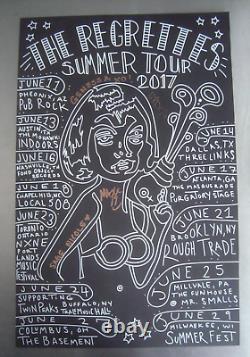 THE REGRETTES
SUMMER TOUR
2017
JUNE 11
PHEONIX, AZ
PUB ROCK
JUNE 13
AUSTIN, TX
THE MOHAWK
INDOORS
JUNE 14
DALLAS, TX
THREE LINKS
JUNE 16
NASHVILLE
FOND OBJECT
RECORDS
JUNE 17
ATLANTA, GA
THE MASQUERADE
PURGATORY STAGE
JUNE 1
CHAPEL HILL, NC
LOCAL 508
JUNE 21
BROOKLYN, NY
ROUGH TRADE
JUNE 23
TORONTO
ONTARIO
NXNE
PORT
LANDS
MUSIC
FESTIVAL
JUNE 24
SUPPORTING
TWIN PEAKS
BUFFALO, NY
TOWN MUSIC HALL
JUNE 25
MILLVALE, PA
THE FUNHOUSE
@ MR. SMALLS
JUNE
COLUMBUS, OH
THE BASEMENT
JUNE 29
MILWAUKEE, WI
SUMMER FEST
SAGE NICOLE